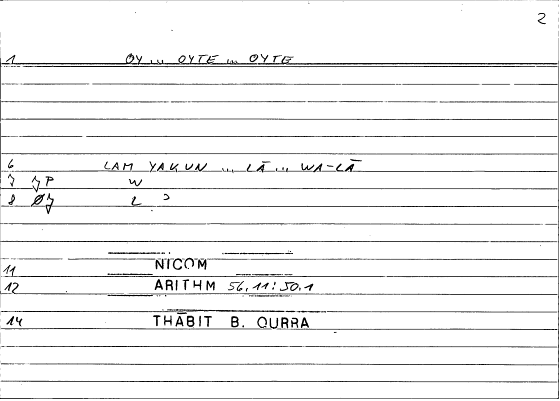 2
1 OY ... OYTE ... OYTE
6 LAM YAKUN ... LĀ ... WA-LĀ
7 W
8 L
11 NICOM
12 ARITHM 56,11: 50.1
14 THĀBIT B. QURRA